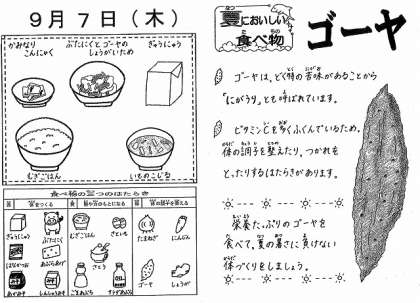 9月7日(木)
かみなり
こんにゃく
ぶたにくとゴーヤの
しょうがいため
ぎゅうにゅう
むぎごはん
いものこじる
食べ物の三つのはたらき
ぎゅうにゅう
ぶたにく
むぎごはん
さといも
たまねぎ
にんじん
あぶらあげ
さとう
あかみそ
しろみそ
ごまあぶら
ゴーヤ
しょうが
夏においしい
食べ物
ゴーヤ
ゴーヤは、どく特の苦味があることから
「にがうり」とも呼ばれています。
ビタミンCを多くふくんでいるため、
体の調子を整えたり、つかれを
とったりするはたらきがあります。
栄養たっぷりのゴーヤを
食べて、夏の暑さに負けない
体づくりをしましょう。